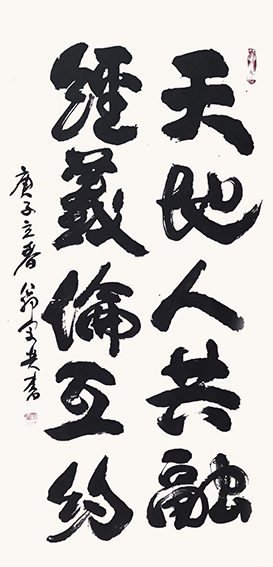 天地人共融
經義倫互約
庚子立春 翁 书